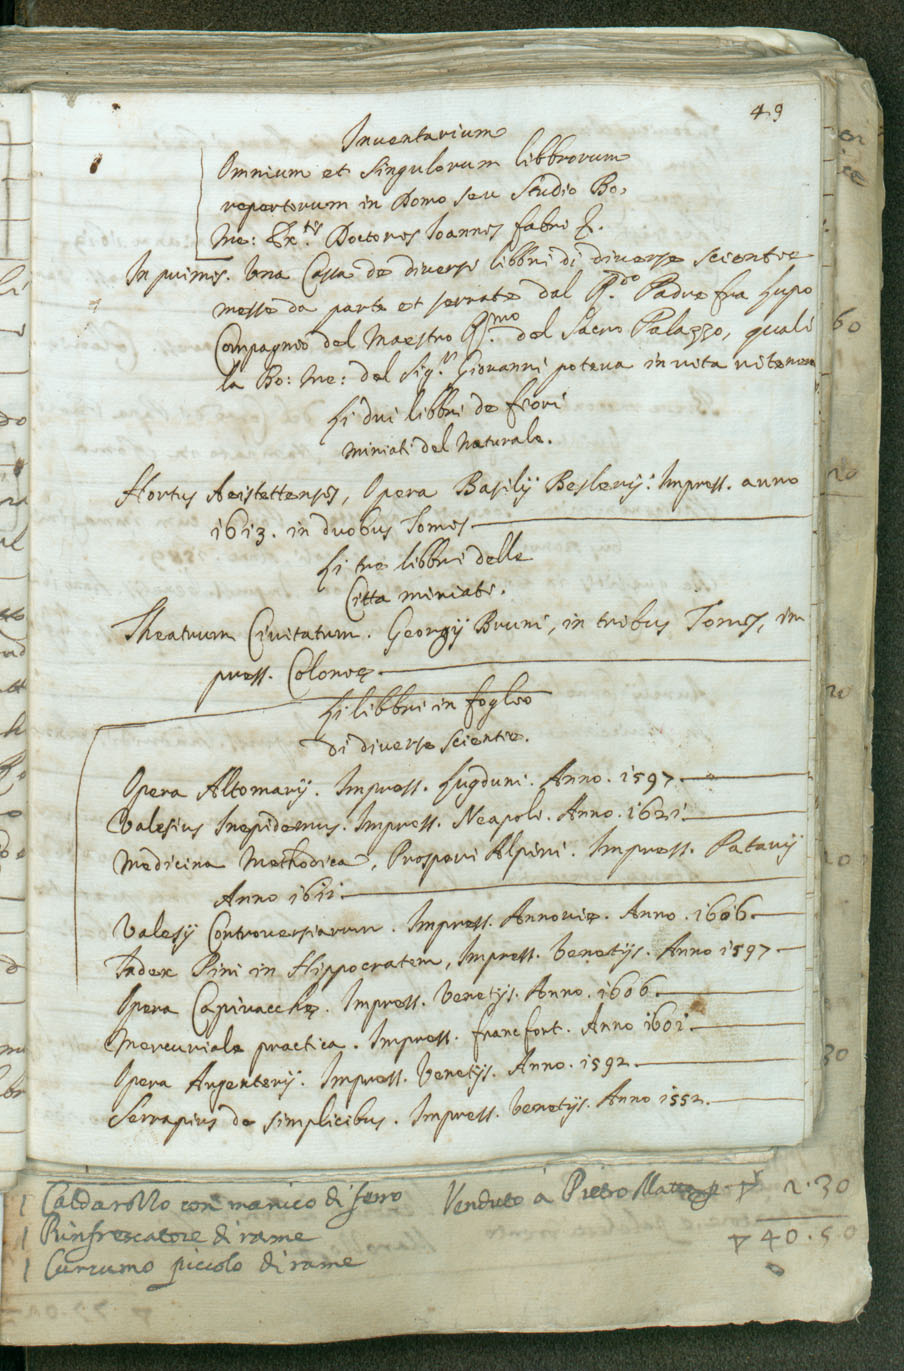 49
Inventarium
Omnium et singulorum libbrorum
repertorum in Domo seu Studio Bo:
me: Ex.tis Doctoris Ioannis fabri &.
In primis. Una Cassa de diversi libbri di diverse scientie
messe da parte et serrate dal R.do Padre fra Lupo
Compagnio del Maestro R.mo del Sacro Palazzo, quali
la Bo: me: del Sig.r Giovanni poteva in vita ritenere
Li dui libbri de fiori
miniati del naturale.
Hortus Aeistettensis, Opera Basilij Beslerij. Impress. anno
1613. in duobus Tomis
Li tre libbri delle
Citta miniate.
Theatrum Civitatum. Georgij Bruni, in tribus Tomis, im
press. Colonię
Li libbri in foglio
di diverse scientie.
Opera Altomarij. Impress. Lugduni. Anno. 1597.
Valesius Inepidemus. Impress. Neapoli. Anno. 1621.
Medicina Methodica, Prosperi Alpini. Impress. Patavij
Anno 1611.
Valesij Controversiarum. Impress. Annovię. Anno. 1606.
Index Pini in Hippocratem, Impress. Venetijs. Anno 1597
Opera Capivacchę. Impress. Venetijs. Anno. 1606.
Mercuriale practica. Impress. francfort. Anno 1601.
Opera Argenterij. Impress. Venetijs. Anno. 1592.
Serrapius de simplicibus. Impress. Venetijs. Anno 1552.
1 Caldarozzo con manico di ferro Venduto à Pietro 2.30
1 Rinfrescatore di rame 40.50
1 Cucumo piccolo di rame